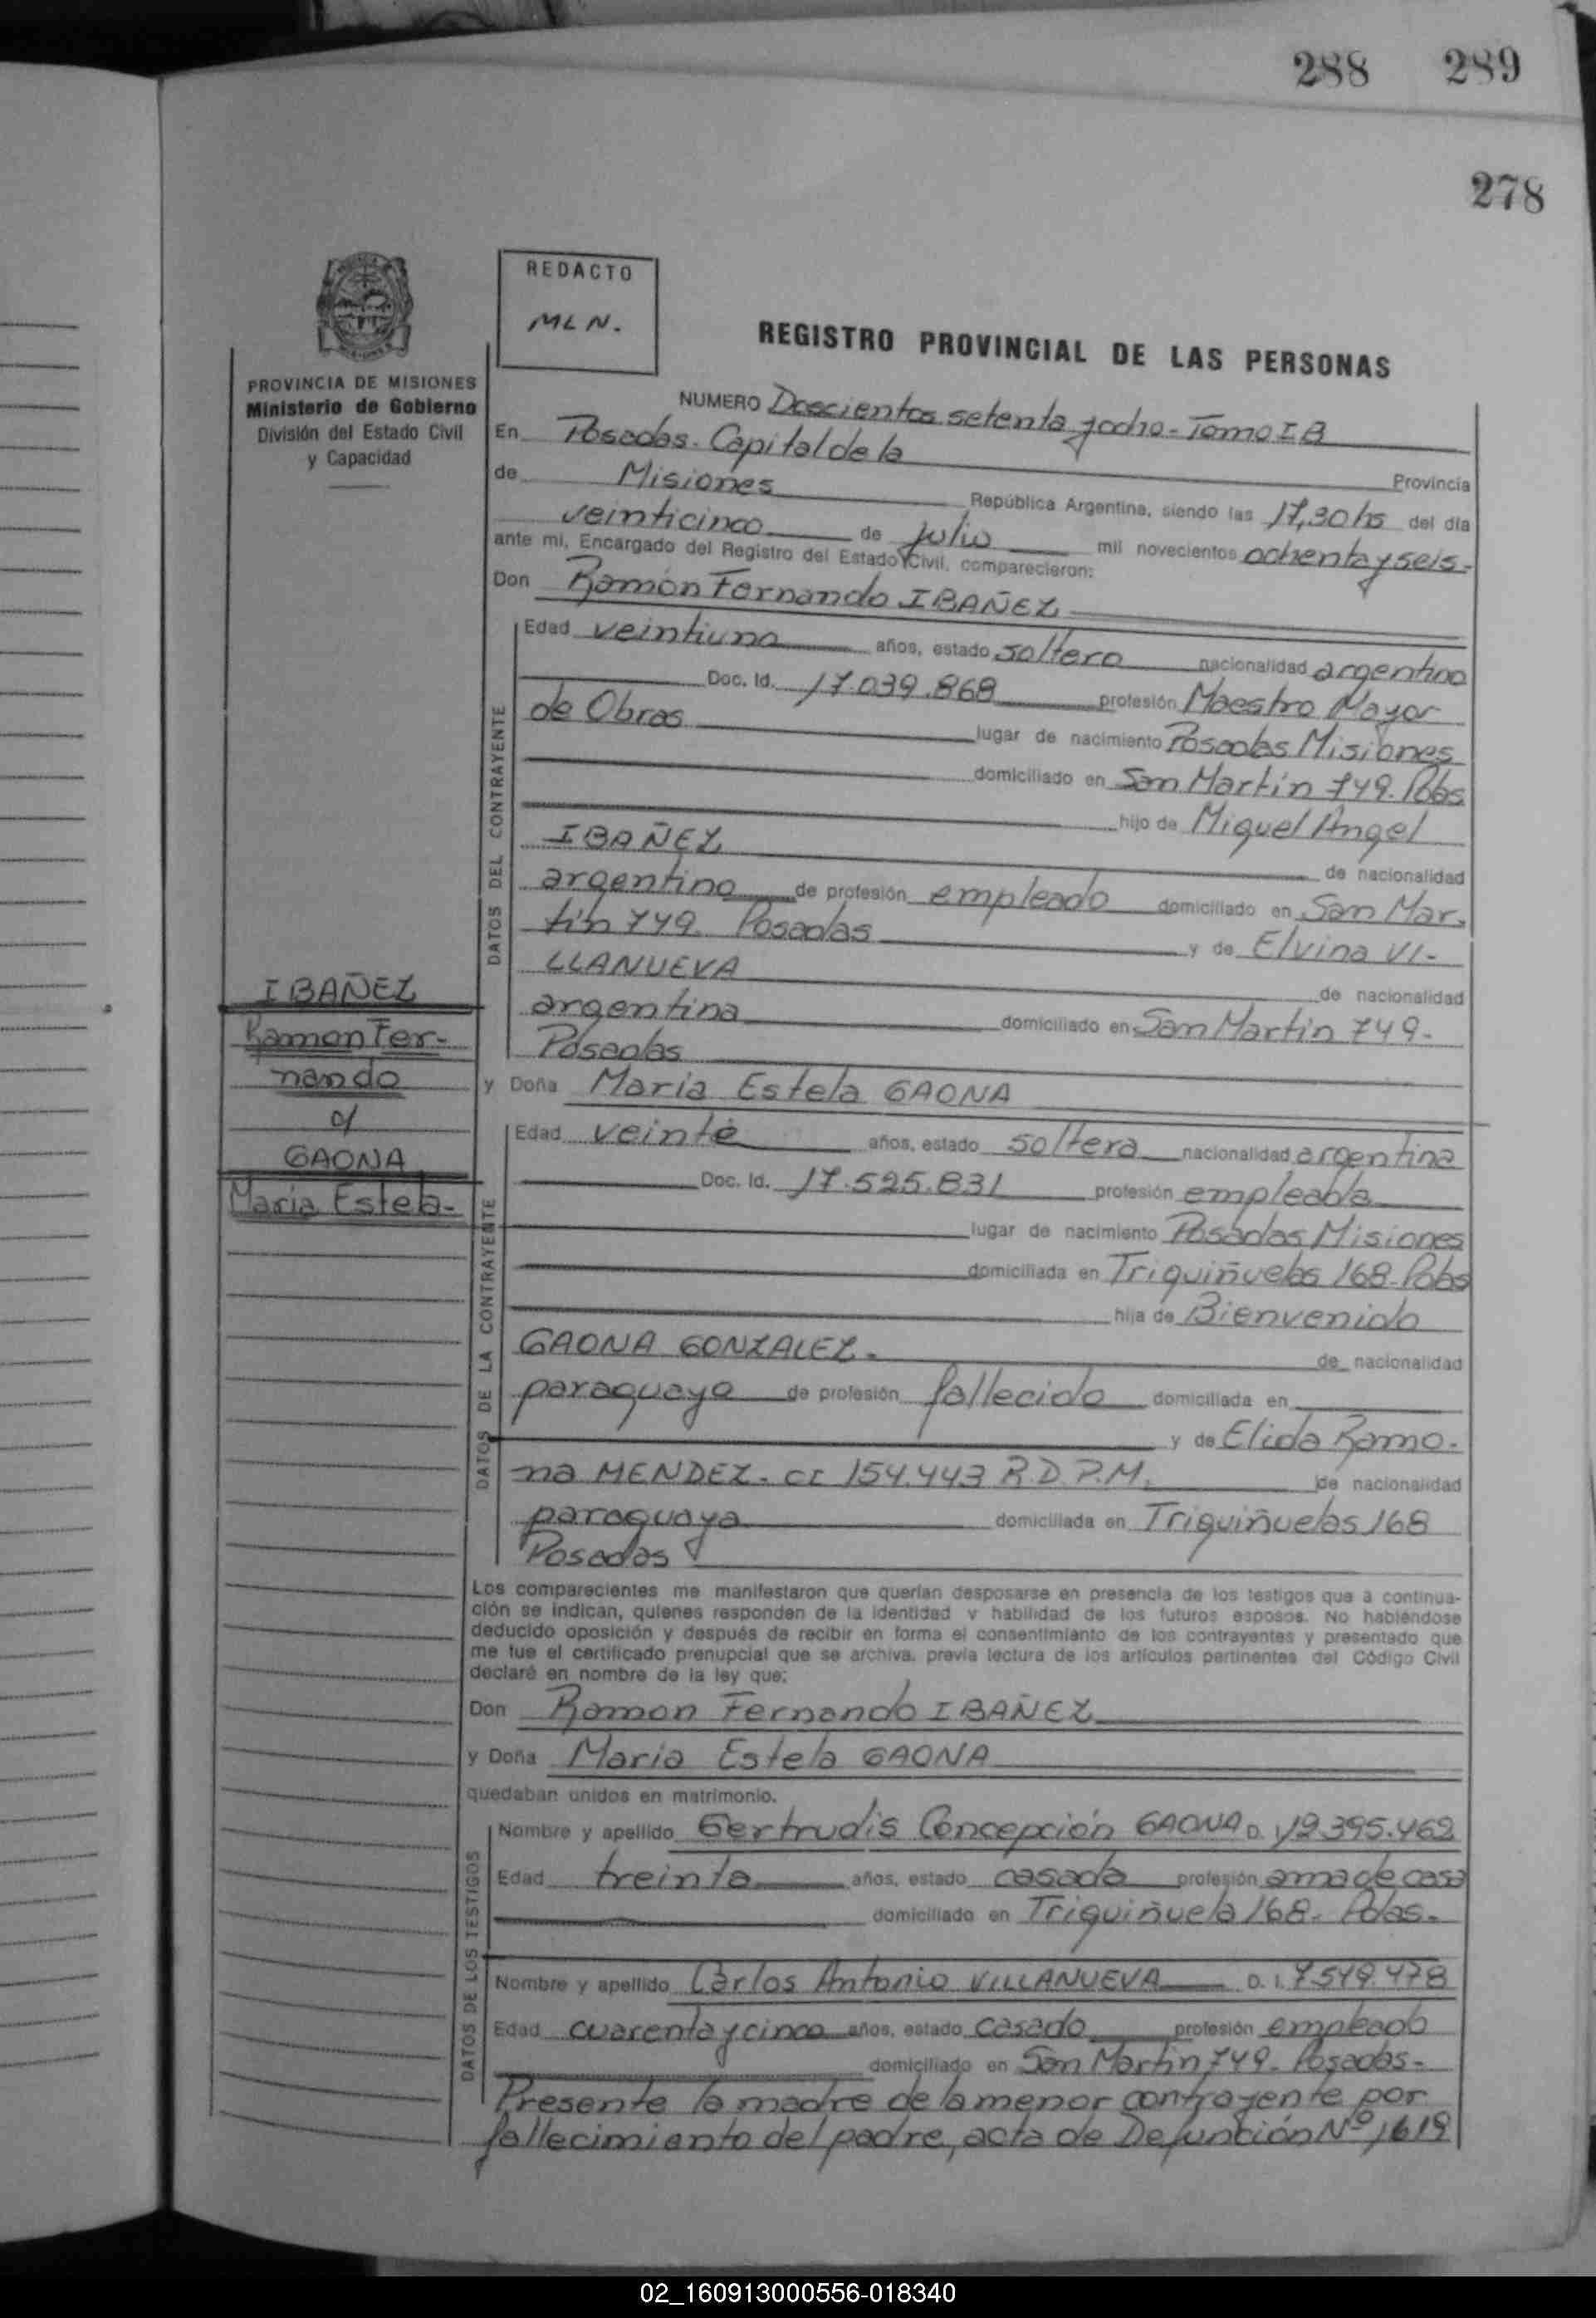 288 289
278
REDACTO
MLN.
REGISTRO PROVINCIAL DE LAS PERSONAS
PROVINCIA DE MISIONES
Ministerio de Gobierno
División del Estado Civil
y Capacidad
NUMERO Doscientos setenta y ocho - Tomo I B
En Posadas. Capital de la Provincia
de Misiones República Argentina, siendo las 17,30 hs del día
veinticinco de julio mil novecientos ochenta y seis-
ante mi, Encargado del Registro del Estado Civil, comparecieron:
Don Ramón Fernando IBAÑEZ
DATOS DEL CONTRAYENTE
Edad veintiuno años, estado soltero nacionalidad argentino
Doc. Id. 17.039.868 profesión Maestro Mayor
de Obras lugar de nacimiento Posadas Misiones
domiciliado en San Martín 749. Pdas
hijo de Miguel Angel
IBAÑEZ de nacionalidad
argentino de profesión empleado domiciliado en San Mar-
tín 749. Posadas y de Elvina VI-
LLANUEVA de nacionalidad
argentina domiciliado en San Martín 749.
Posadas
IBAÑEZ
Ramon Fer-
nando
c/
GAONA
Maria Estela-
y Doña Maria Estela GAONA
DATOS DE LA CONTRAYENTE
Edad veinte años, estado soltera nacionalidad argentina
Doc. Id. 17.525.831 profesión empleada
lugar de nacimiento Posadas Misiones
domiciliada en Triquiñuelas 168. Pdas
hija de Bienvenido
GAONA GONZALEZ. de nacionalidad
paraguaya de profesión fallecido domiciliada en
y de Elida Ramo-
na MENDEZ. CI 154.443 R.D.P.M. de nacionalidad
paraguaya domiciliada en Triquiñuelas 168
Posadas
Los comparecientes me manifestaron que querían desposarse en presencia de los testigos que a continua-
ción se indican, quienes responden de la identidad y habilidad de los futuros esposos. No habiéndose
deducido oposición y después de recibir en forma el consentimiento de los contrayentes y presentado que
me fue el certificado prenupcial que se archiva, previa lectura de los artículos pertinentes del Código Civil
declaré en nombre de la ley que:
Don Ramon Fernando IBAÑEZ
y Doña Maria Estela GAONA
quedaban unidos en matrimonio.
DATOS DE LOS TESTIGOS
Nombre y apellido Gertrudis Concepción GAONA D. 12.395.462
Edad treinta años, estado casada profesión ama de casa
domiciliado en Triquiñuela 168. Pdas.
Nombre y apellido Carlos Antonio VILLANUEVA D. I. 7.549.478
Edad cuarenta y cinco años, estado casado profesión empleado
domiciliado en San Martín 749. Posadas-
Presente la madre de la menor contrayente por
fallecimiento del padre, acta de Defunción Nº 1619
02_160913000556-018340